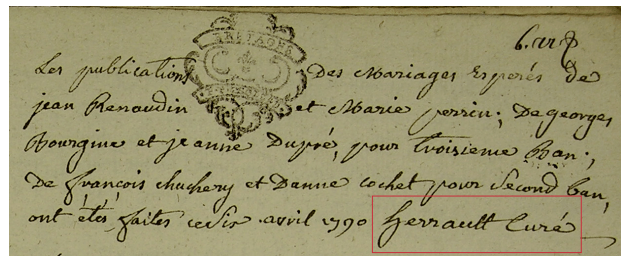 BRETAGNE
6. avr
Les publications Des Mariages Esperés de
jean Renaudin et Marie perrin; De georges
Bourgine et jeanne Dupré, pour troisieme Ban;
De françois chuchery et Danne cochet pour Second ban,
ont étés faites ce Six avril 1790 herrault Curé